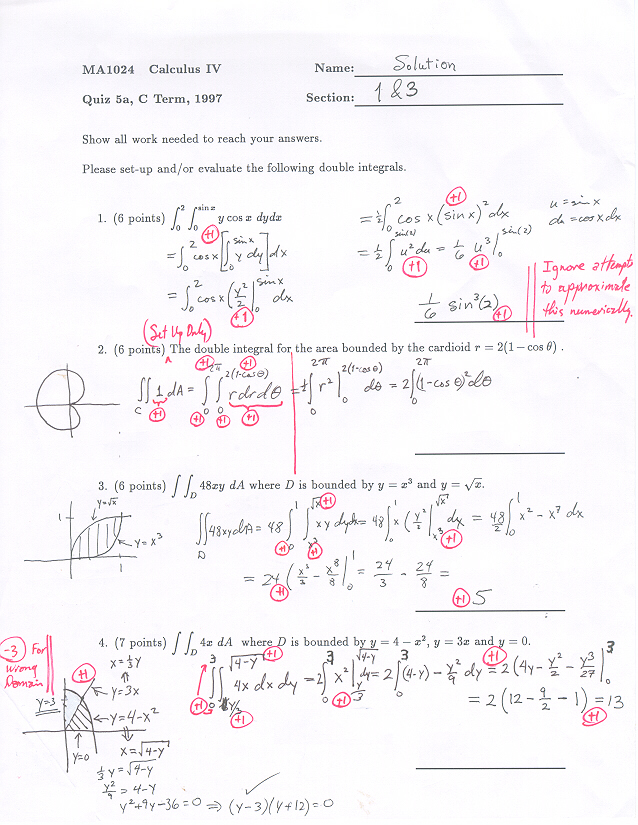 MA1024 Calculus IV Name: Solution
Quiz 5a, C Term, 1997 Section: 1 & 3
Show all work needed to reach your answers.
Please set-up and/or evaluate the following double integrals.
1. (6 points) ∫₀² ∫₀^{sin x} y cos x dydx
+1
= ∫₀² cos x [∫₀^{sin x} y dy] dx
= ∫₀² cos x (y²/2 |₀^{sin x} dx
+1
+1
= ½ ∫₀² cos x (sin x)² dx
u = sin x
du = cos x dx
= ½ ∫₀^{sin(2)} u² du = 1/6 u³ |₀^{sin(2)}
+1 +1
1/6 sin³(2) +1
Ignore attempts
to approximate
this numerically.
(Set Up Only)
2. (6 points) ^ The double integral for the area bounded by the cardioid r = 2(1 − cos θ) .
+1 +1
∬_C 1 dA = ∫₀^{2π} ∫₀^{2(1-cos θ)} r dr dθ = ½ ∫₀^{2π} r² |₀^{2(1-cos θ)} dθ = 2 ∫₀^{2π} (1-cos θ)² dθ
+1 +1 +1 +1
3. (6 points) ∫∫_D 48xy dA where D is bounded by y = x³ and y = √x.
y=√x
1
y = x³
1
∬_D 48xy dA = 48 ∫₀¹ ∫_{x³}^{√x} xy dy dx = 48 ∫₀¹ x (y²/2 |_{x³}^{√x} dx = 48/2 ∫₀¹ x² − x⁷ dx
+1 +1 +1 +1
= 24 (x³/3 − x⁸/8 |₀¹ = 24/3 − 24/8 =
+1
+1 5
4. (7 points) ∫∫_D 4x dA where D is bounded by y = 4 − x², y = 3x and y = 0.
-3 For
Wrong
Domain
x = ⅓y
+1
y = 3x
y=3
y = 4-x²
y=0
x = √4-y
∫₀³ ∫_{y/3}^{√4-y} 4x dx dy = 2 ∫₀³ x² |_{y/3}^{√4-y} dy = 2 ∫₀³ (4-y) − y²/9 dy = 2 (4y − y²/2 − y³/27 |₀³
+1 +1 +1 +1 +1
= 2 (12 − 9/2 − 1) = 13
+1
⅓y = √4-y
y²/9 = 4-y
y²+9y-36 = 0 ⇒ (y-3)(y+12) = 0